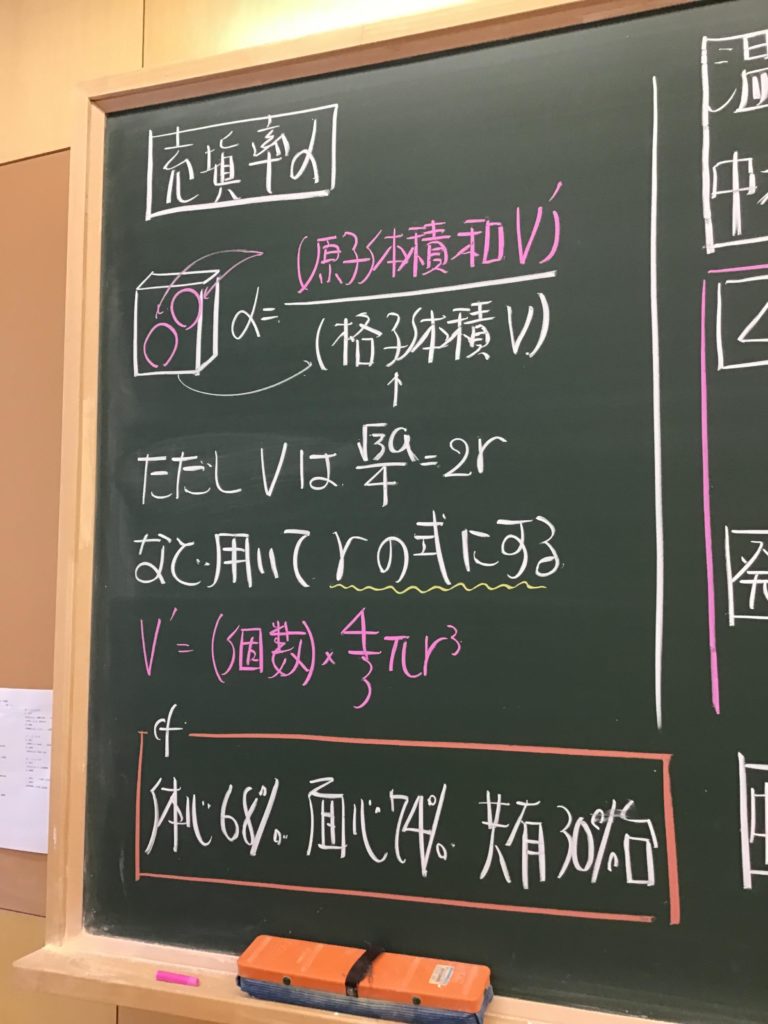 充填率α
α=(原子体積和V′)/(格子体積V)
↑
ただしVは √3a/4=2r
など用いてrの式にする
V′=(個数)×4/3πr³
cf
体心68% 面心74% 共有30%台
温
中
発